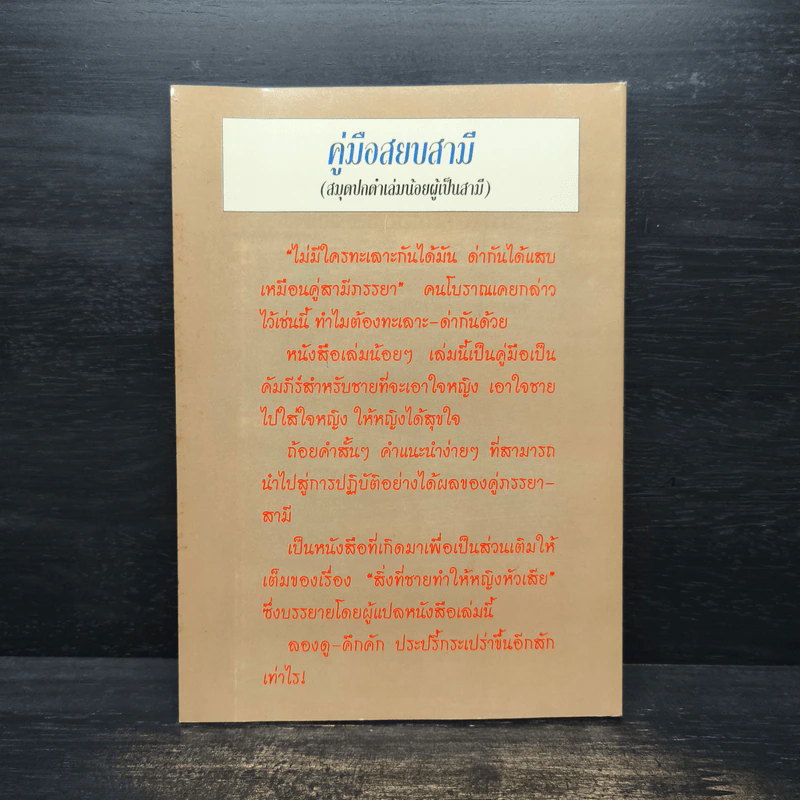 คู่มือสยบสามี
(สมุดปกดำเล่มน้อยผู้เป็นสามี)
"ไม่มีใครทะเลาะกันได้มัน ด่ากันได้แสบ
เหมือนคู่สามีภรรยา" คนโบราณเคยกล่าว
ไว้เช่นนี้ ทำไมต้องทะเลาะ-ด่ากันด้วย
หนังสือเล่มน้อยๆ เล่มนี้เป็นคู่มือเป็น
คัมภีร์สำหรับชายที่จะเอาใจหญิง เอาใจชาย
ไปใส่ใจหญิง ให้หญิงได้สุขใจ
ถ้อยคำสั้นๆ คำแนะนำง่ายๆ ที่สามารถ
นำไปสู่การปฏิบัติอย่างได้ผลของคู่ภรรยา-
สามี
เป็นหนังสือที่เกิดมาเพื่อเป็นส่วนเติมให้
เต็มของเรื่อง "สิ่งที่ชายทำให้หญิงหัวเสีย"
ซึ่งบรรยายโดยผู้แปลหนังสือเล่มนี้
ลองดู-คึกคัก ประปรี้กระเปร่าขึ้นอีกสัก
เท่าไร!